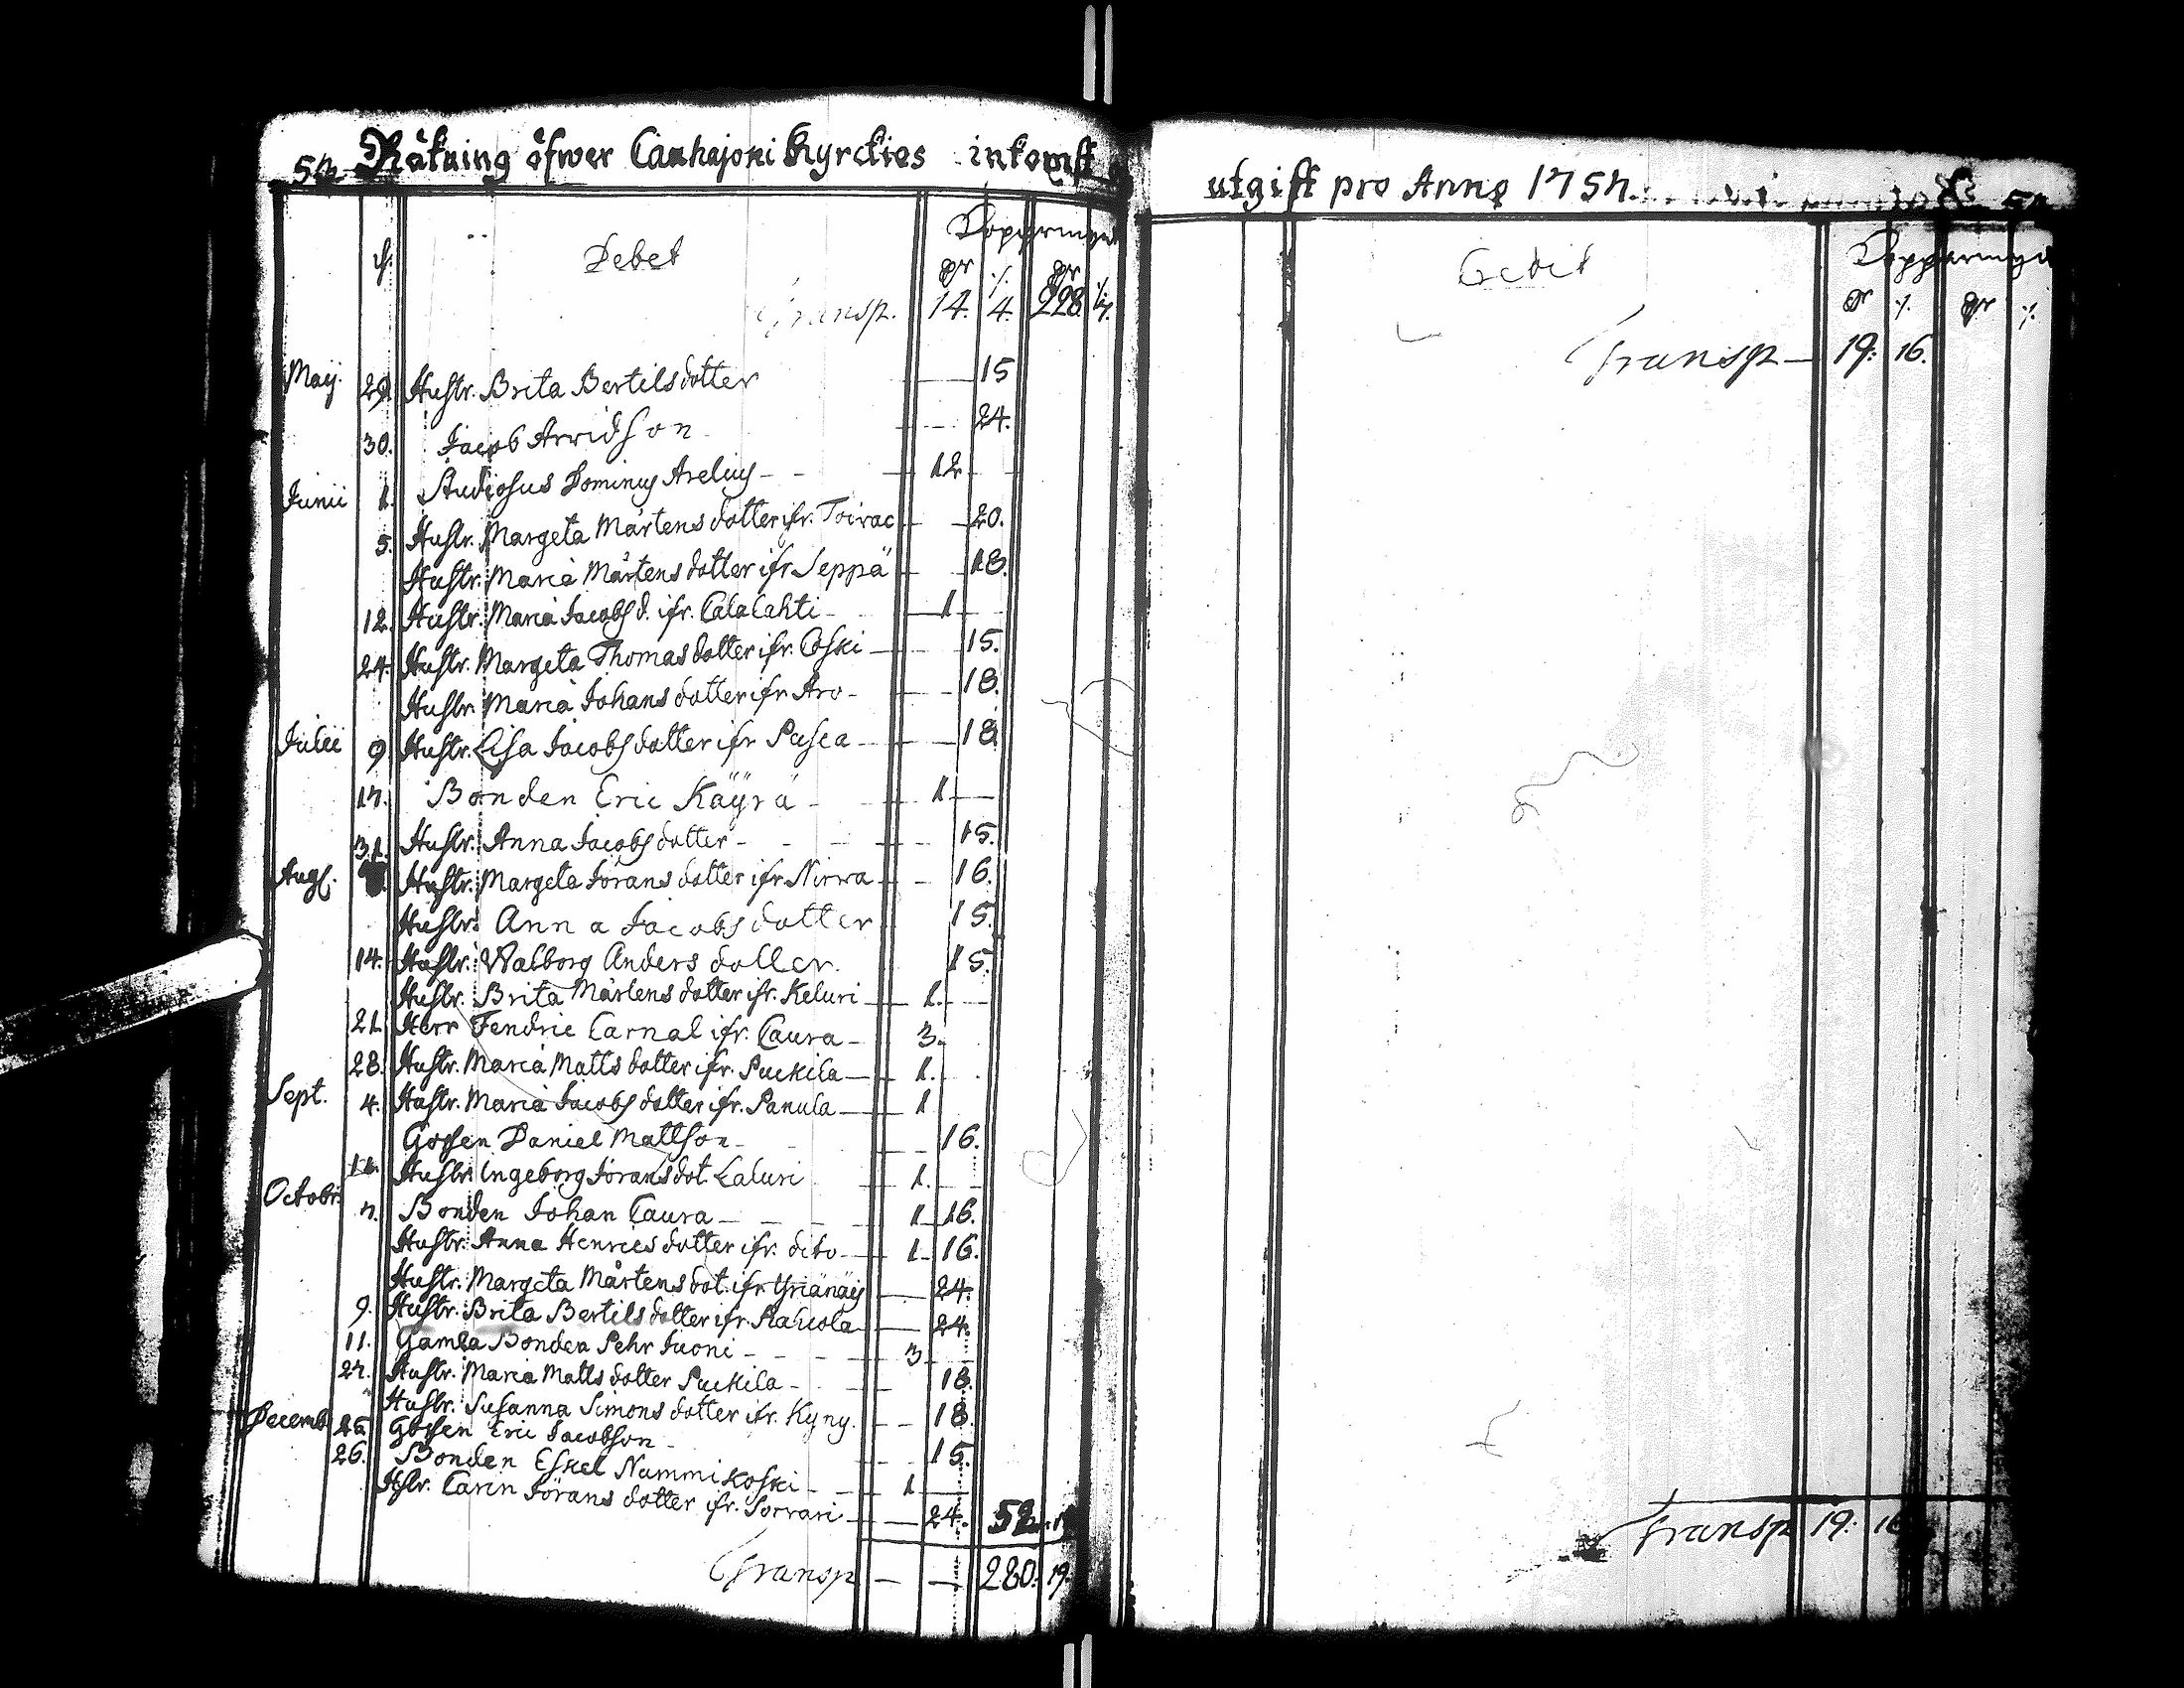 57. Räkning öfwer Cauhajoki Kyrckios inkomst
Kopparmynt
d. Debet
Transp. 14. 4. 228. 4.
Maij. 29. Hustr. Brita Bertilsdotter — 15
30. Jacob Arvidson — 24.
Junii 1. Studiosus Dominus Arelius — 12
5. Hustr. Margeta Mårtensdotter ifr. Toivac — 20.
Hustr. Maria Mårtens dotter ifr Seppä — 18.
12. Hustr. Maria Jacobs d. ifr. Calalahti — 1
24. Hustr. Margeta Thomas dotter ifr. Coski — 15.
Hustr. Maria Johans dotter ifr Aro — 18.
Julii 9. Hustr. Lisa Jacobs dotter ifr Pusca — 18
17. Bonden Eric Käyrä — 1
31. Hustr. Anna Jacobs dotter — 15.
Aug. Hustr. Margeta Jörans dotter ifr Nirwa — 16.
Hustr. Anna Jacobs dotter 15.
14. Hustr. Walborg Anders dotter. 15.
Hustr. Brita Mårtens dotter ifr. Keturi — 1.
21. Herr Fendric Carnal ifr. Caura — 3.
28. Hustr. Maria Matts dotter ifr. Puckila — 1.
Sept. 4. Hustr. Maria Jacobs dotter ifr. Panula — 1
Gossen Daniel Mattson — 16.
11. Hustr. Ingeborg Jöransdot. Laluri 1.
Octobr. 7. Bonden Johan Caura — 1 16.
Hustr. Anna Henrics dotter ifr. dito — 1 16.
Hustr. Margeta Mårtens dot. ifr Yrjänäij — 24.
9. Hustr. Brita Bertils dotter ifr. Rahcola — 24.
11. Gamla Bonden Pehr Juoni — 3
27. Hustr. Maria Matts dotter Puckila — 18.
Hustr. Susanna Simons dotter ifr. Kyny. — 18.
Decemb. 25 Gossen Eric Jacobson — 15.
26. Bonden Eskel Nummikoski — 1
Hstr. Carin Jörans dotter ifr. Sorvari — 24. 52.
Transp — 280. 19.
utgift pro Anno 1757.
Kopparmynt
Credit
Transp — 19: 16.
Transp 19: 16